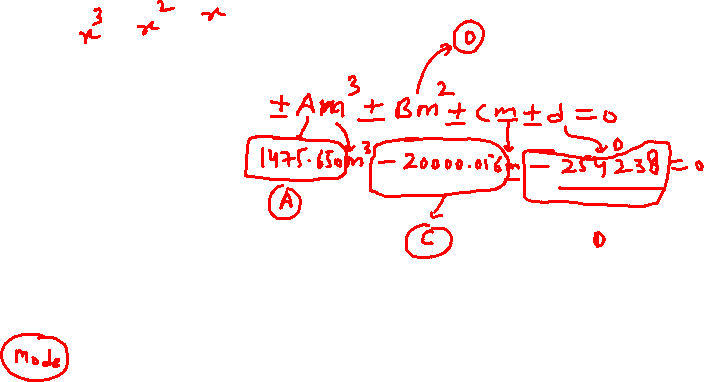 x³ x² x
0
±Am³ ± Bm² ± cm ± d = 0
1475.650m³ - 20000.016m - 254238 = 0
D
A
C
D
Mode